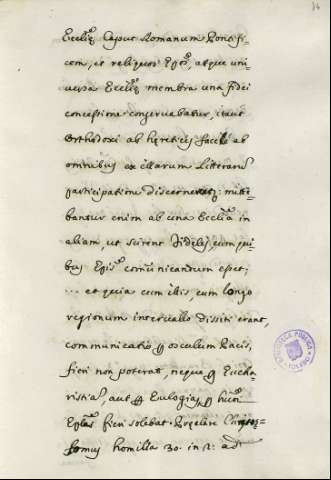 Eccliæ Caput Romanum Pontifi-
cem, et reliquos Epos, atque uni-
versa Eccliæ membra una fidei
concessione conservabatur, itaut
Orthodoxi ab hæreticis facile ab
omnibus ex illarum Litterarum
participatione discernerentur: mitte-
bantur enim ab una Ecclia in
aliam, ut scirent Fideles, cum qui-
bus Epis communicandum esset;
... et quia cum illis, cum longo
regionum intervallo dissiti erant,
communicatio per osculum Pacis,
fieri non poterat, neque per Eucha-
ristia, aut per Eulogias, per
Eplas fieri solebat.
somus homilia 30. in 2. ad
BIBLIOTECA PUBLICA
TOLEDO